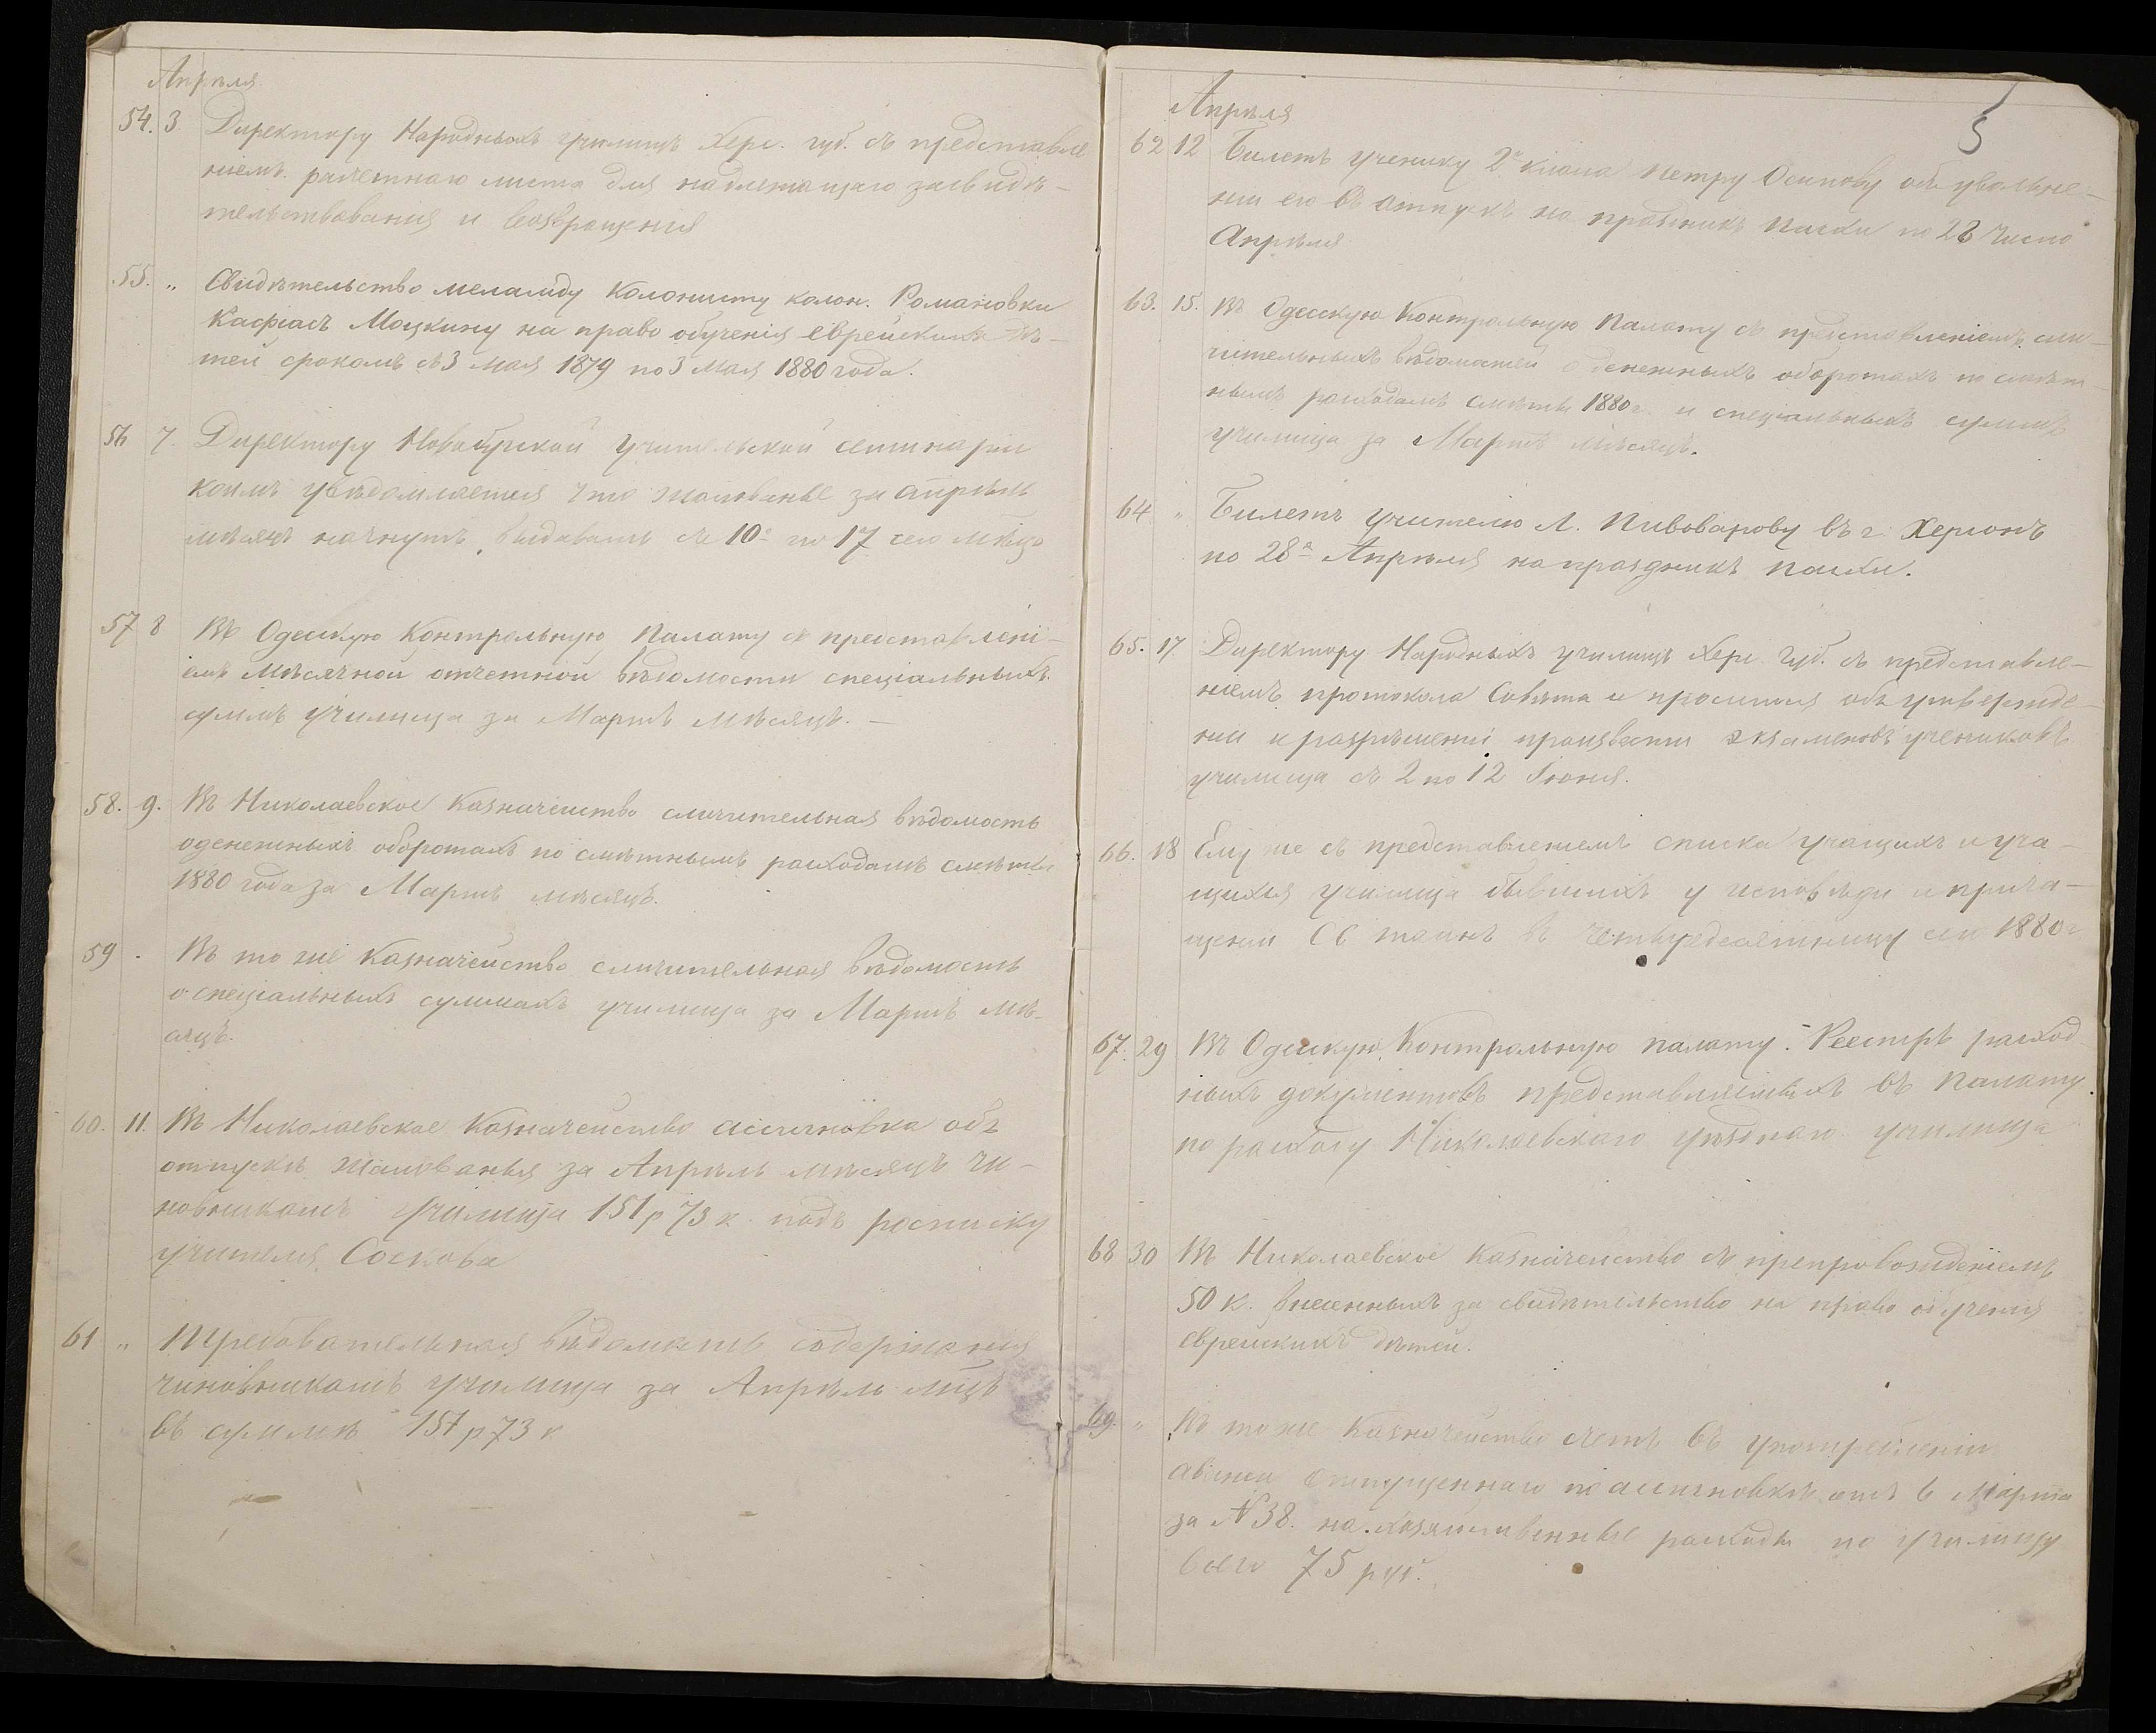 Апрѣля
54. 3. Директору Народныхъ училищъ Херс. губ. съ представле
ніемъ расчетнаго листа для надлежащаго засвидѣ-
тельствованія и возвращенія
55. " Свидѣтельство меламду колонисту колон. Романовки
Моцкину на право обученія еврейскихъ дѣ-
тей срокомъ съ 3 мая 1879 по 3 мая 1880 года.
56 7. Директору Новобугской учительской семинаріи
коимъ увѣдомляется что жалованье за апрѣль
мѣсяцъ начнутъ выдавать съ 10 го по 17 сего мѣсц
57 8 Въ Одесскую Контрольную Палату съ представлені-
емъ мѣсячной отчетной вѣдомости спеціальныхъ
суммъ училища за Мартъ мѣсяцъ. —
58. 9. Въ Николаевское Казначейство сличительная вѣдомость
о денежныхъ оборотахъ по смѣтнымъ расходамъ смѣты
1880 года за Мартъ мѣсяцъ.
59 . Въ то же Казначейство сличительная вѣдомость
о спеціальныхъ суммахъ училища за Мартъ мѣ-
сяцъ.
60. 11. Въ Николаевское Казначейство ассигновка объ
отпускѣ жалованья за Апрѣль мѣсяцъ чи-
новникамъ училища 151 р 73 к. подъ росписку
учителя Соскова
61 " Требовательная вѣдомость содержанія
чиновникамъ училища за Апрѣль мѣцъ
въ суммѣ 151 р 73 к
5
Апрѣля
62 12 Билетъ ученику 2го класа Петру Осипову объ увольне-
ніи его въ отпускъ на праздникъ Пасхи по 28 число
Апрѣля
63. 15. Въ Одесскую Контрольную Палату съ представленіемъ сли-
чительныхъ вѣдомостей о денежныхъ оборотахъ по смѣт-
нымъ расходамъ смѣты 1880 г. и спеціальныхъ суммъ
училища за Мартъ мѣсяцъ.
64 " Билетъ учителю Л. Пивоварову въ г. Херсонъ
по 28е Апрѣля на праздникъ Пасхи.
65. 17 Директору Народныхъ училищъ Херс. губ. съ представле-
ніемъ протокола Совѣта и просится объ утвержде-
ніи и разрѣшеніи произвести экзаменовъ учениковъ
училища съ 2 по 12 Іюня.
66. 18 Ему же съ представленіемъ списка учащихъ и уча-
щихся училища бывшихъ у исповѣди и прича-
щенія Св. таинъ въ четыредесятницу сего 1880 г
67. 29 Въ Одесскую Контрольную палату. Реестръ расход
ныхъ документовъ представляемыхъ въ Палату
по расходу Николаевскаго уѣзднаго училища
68 30 Въ Николаевское Казначейство съ препровожденіемъ
50 к. внесенныхъ за свидѣтельство на право обученія
еврейскихъ дѣтей.
69. " Въ тоже Казначейство счетъ въ употребленіи
аванса отпущеннаго по ассигновкѣ отъ 6 Марта
за № 38. на хозяйственные расходы по училищу
всего 75 руб.